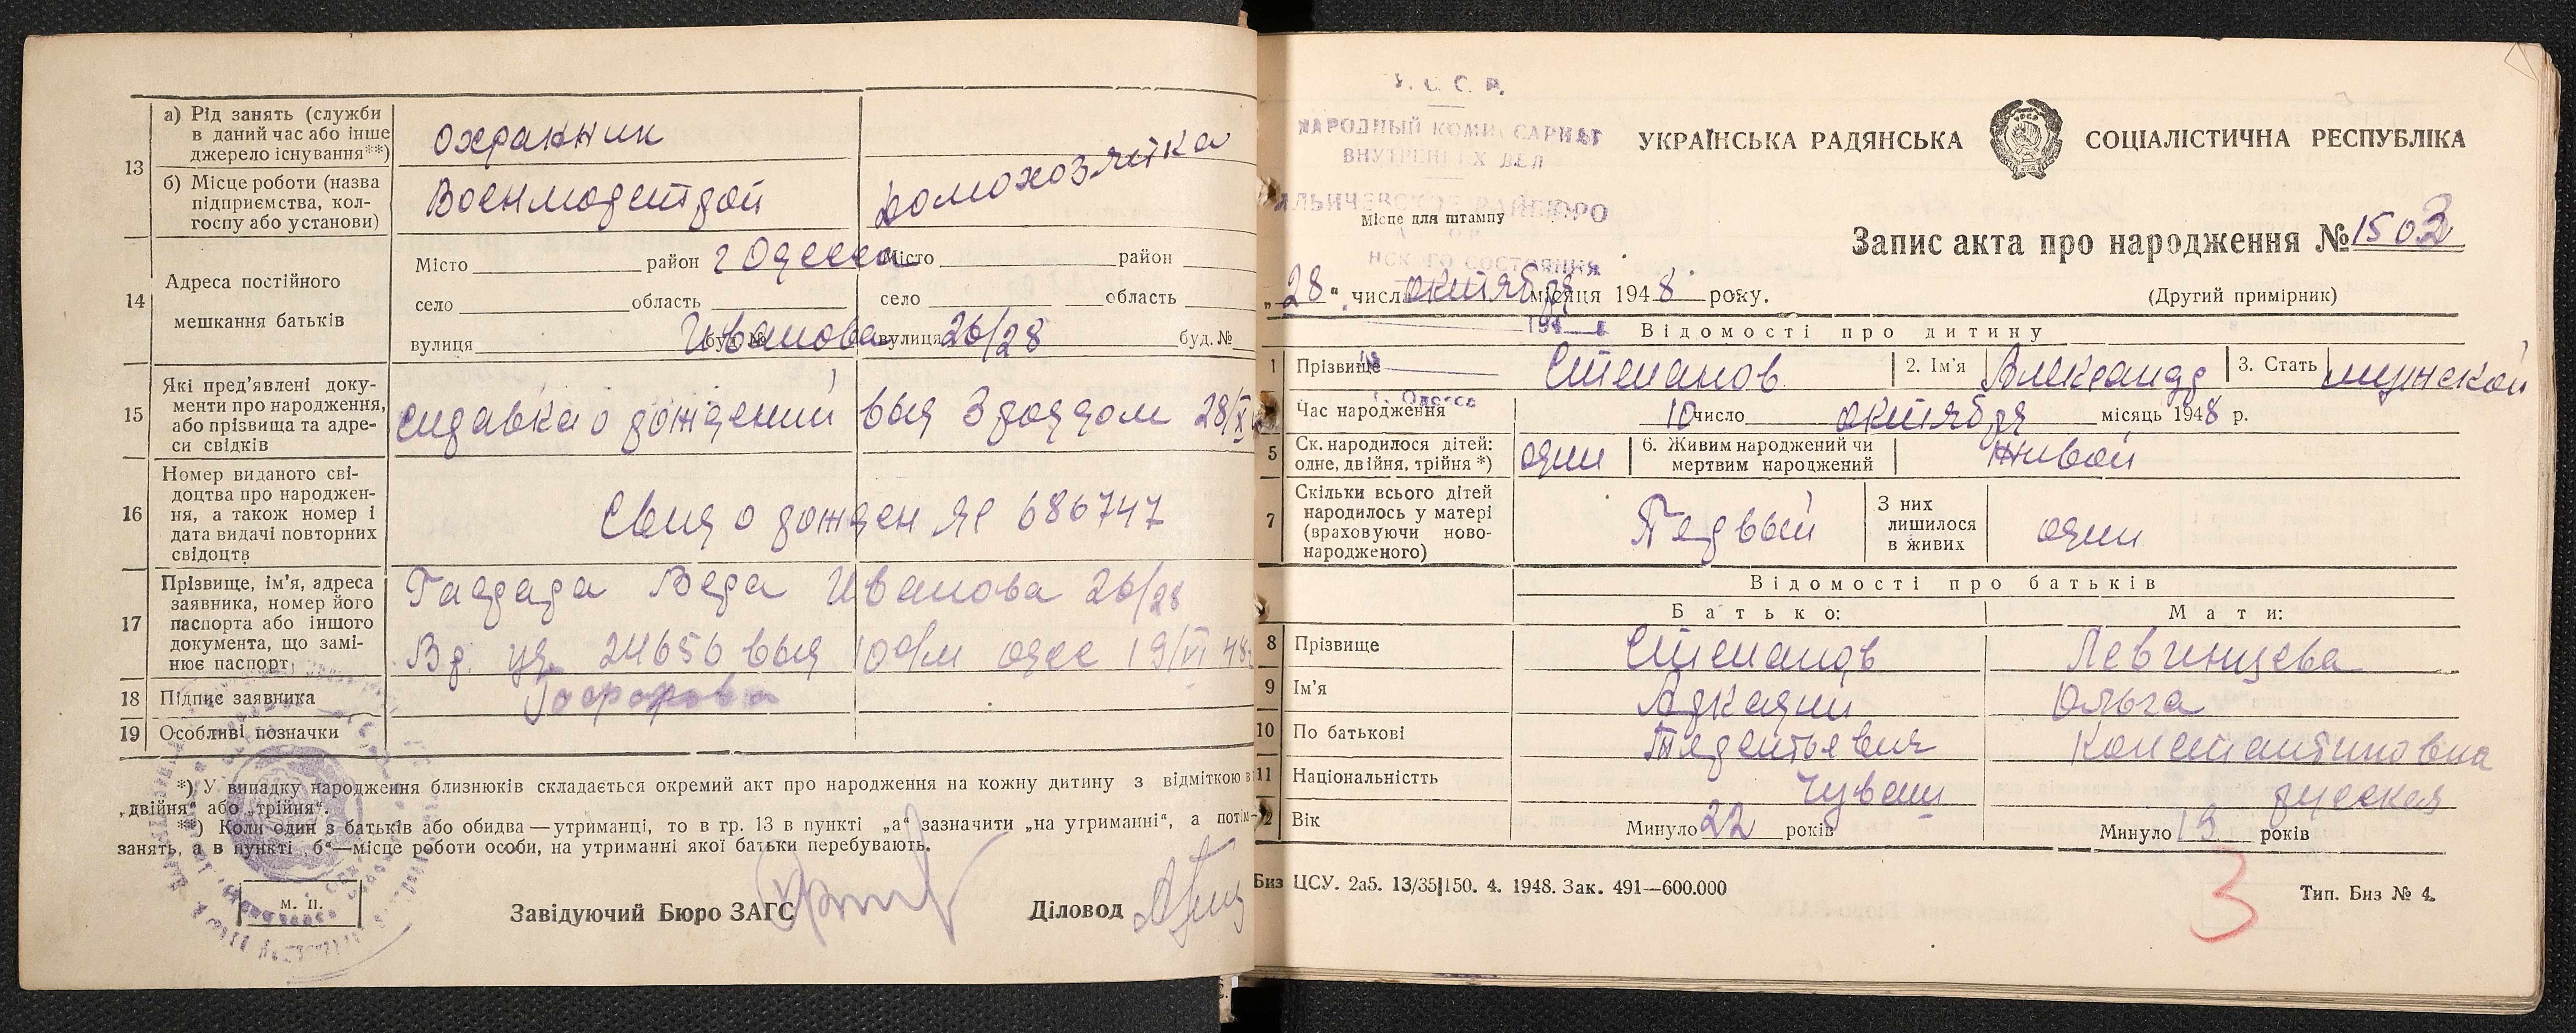 13
а) Рід занять (служби
в даний час або інше
джерело існування**)
охранник
б) Місце роботи (назва
підприємства, кол-
госпу або установи)
домохозяйка
14
Адреса постійного
мешкання батьків
Місто район г Одесса Місто район
село область село область
вулиця буд. № Иванова вулиця 26/28 буд. №
15
Які пред’явлені доку-
менти про народження,
або прізвища та адре-
си свідків
справка о рождении выд 3 роддом 28/X
16
Номер виданого сві-
доцтва про народжен-
ня, а також номер і
дата видачі повторних
свідоцтв
Свид о рожден ЯЕ 686747
17
Прізвище, ім’я, адреса
заявника, номер його
паспорта або іншого
документа, що замі-
нює паспорт
Вера Иванова 26/28
Вр. уд. 24656 выд 10 о/м одес 19/VI 48
18 Підпис заявника
19 Особливі позначки
*) У випадку народження близнюків складається окремий акт про народження на кожну дитину з відміткою в
„двійня“ або „трійня“.
**) Коли один з батьків або обидва—утриманці, то в гр. 13 в пункті „а“ зазначити „на утриманні“, а потім—
занять, а в пункті „б“—місце роботи особи, на утриманні якої батьки перебувають.
м. п.
Завідуючий Бюро ЗАГС Діловод
У. С. С. Р.
НАРОДНЫЙ КОМИССАРИАТ
ВНУТРЕННИХ ДЕЛ
РАЙБЮРО
Місце для штампу
СОСТОЯНИЯ
г. Одесса
УКРАЇНСЬКА РАДЯНСЬКА СОЦІАЛІСТИЧНА РЕСПУБЛІКА
Запис акта про народження № 1503
„28“ числ октября місяця 1948 року.
(Другий примірник)
Відомості про дитину
1 Прізвище Степанов 2. Ім’я Александр 3. Стать мужской
Час народження 10 число октября місяць 1948 р.
5 Ск. народилося дітей:
одне, двійня, трійня *) один 6. Живим народжений чи
мертвим народжений живой
7 Скільки всього дітей
народилось у матері
(враховуючи ново-
народженого) Первый З них
лишилося
в живих один
Відомості про батьків
Батько: Мати:
8 Прізвище Степанов Левинцева
9 Ім’я Аркадий Ольга
10 По батькові Терентьевич Константиновна
11 Національність Чуваш русская
12 Вік Минуло 22 років Минуло 19 років
Биз ЦСУ. 2а5. 13/35|150. 4. 1948. Зак. 491—600.000
3
Тип. Биз № 4.